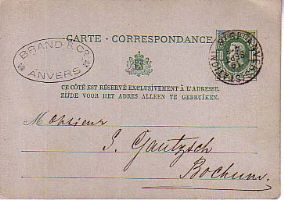 CARTE-CORRESPONDANCE
BRAND & Co.
ANVERS
CE CÔTÉ EST RÉSERVÉ EXCLUSIVEMENT À L'ADRESSE.
ZIJDE VOOR HET ADRES ALLEEN TE GEBRUIKEN.
Monsieur
J. Gautzsch
Bochum.